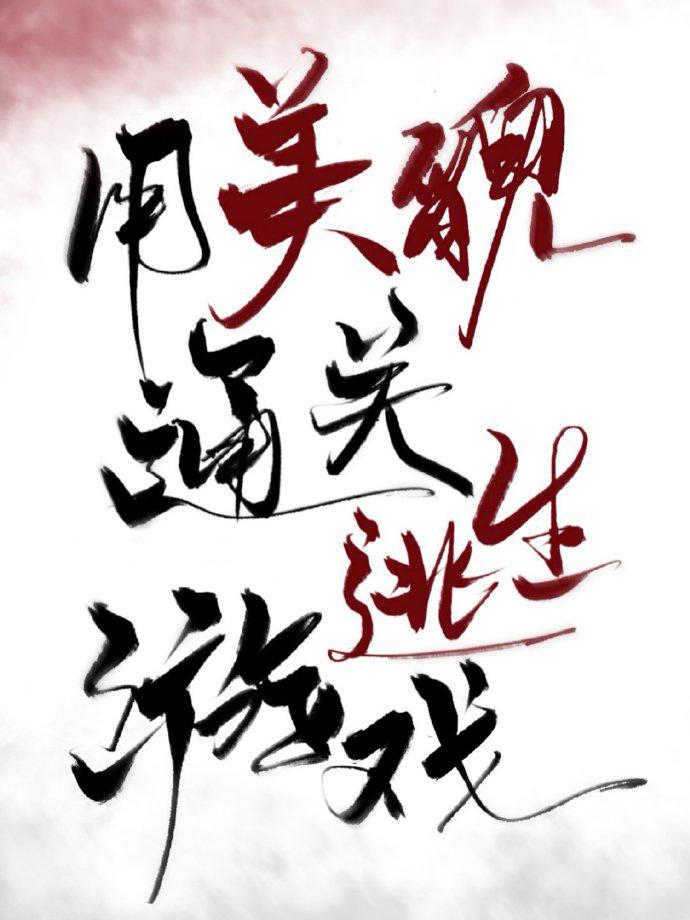 用美貌
通关
逃生
游戏